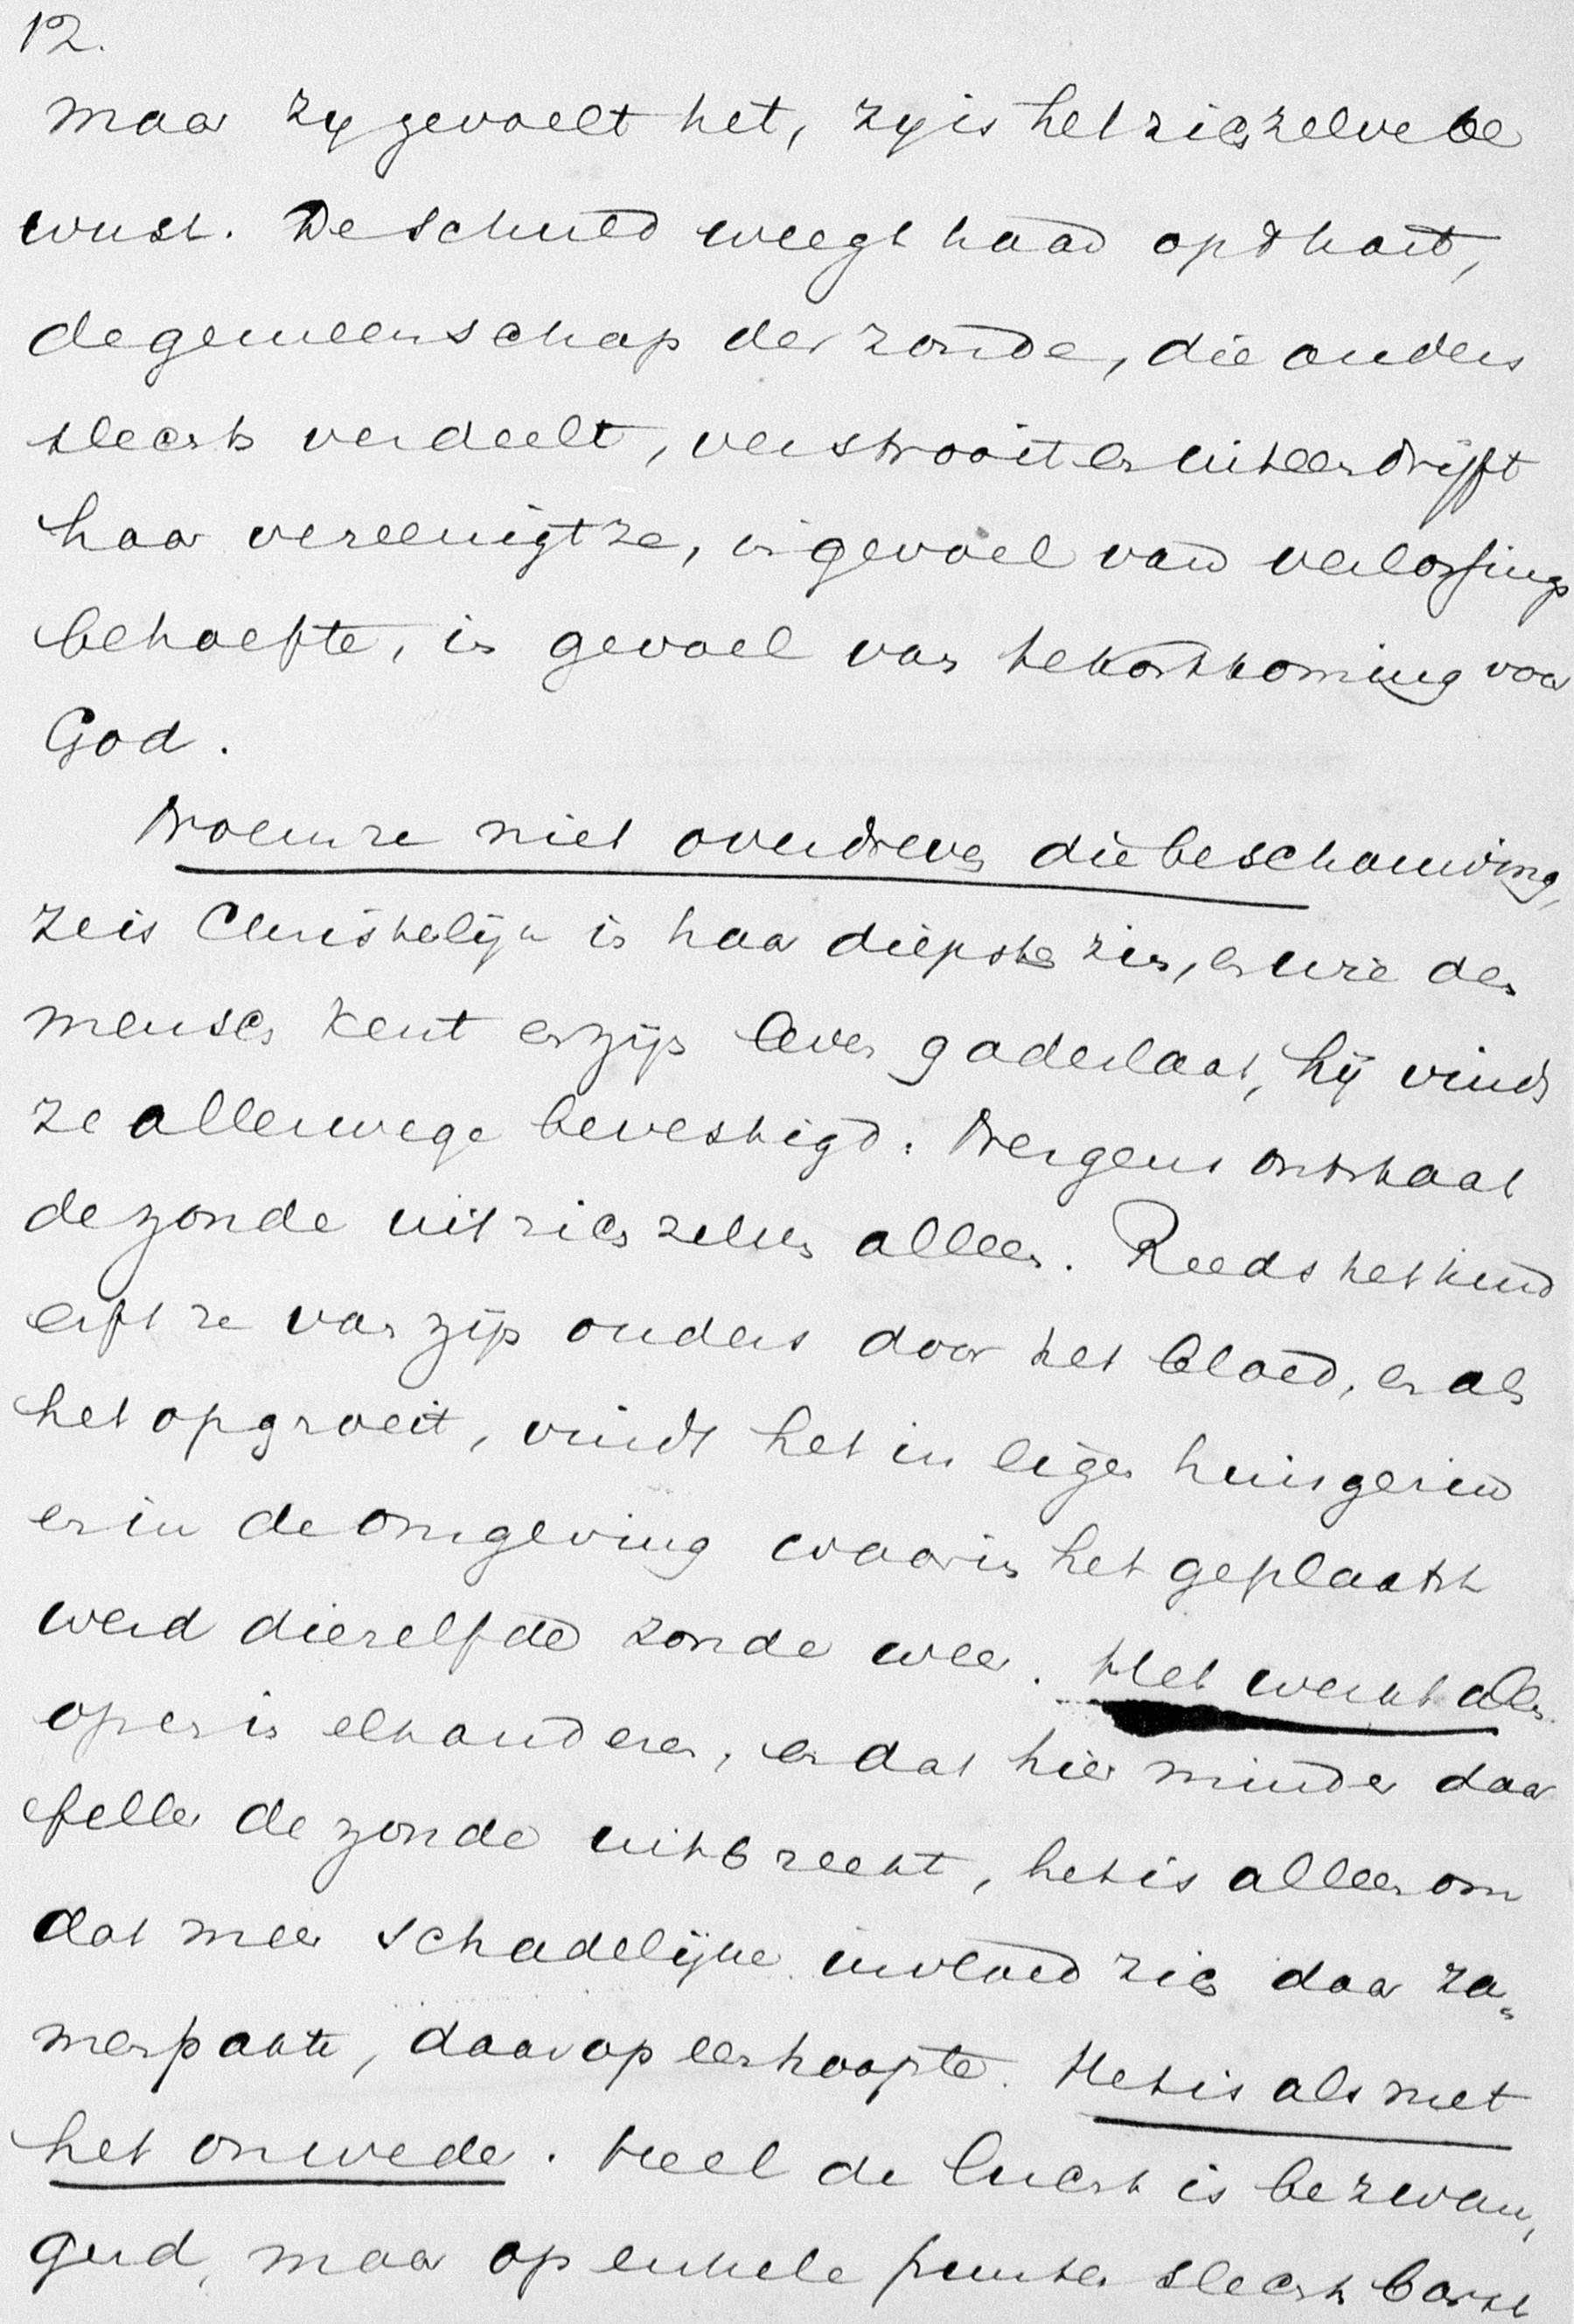 12.
maar zy gevoelt het, zy is het zich zelve be
wust. De schuld weegt haar op 't hart,
de gemeenschap der zonde, die anders
slechts verdeelt, verstrooit en uiteendrijft
haar vereenigt ze, in gevoel van verlossings
behoefte, in gevoel van tekortkoming voor
God.
Noem ze niet overdreven die beschouwing,
ze is Christelijk in haar diepsten zin, en wie den
mensch kent en zijn leven gadeslaat, hij vindt
ze allerwege bevestigd. Nergens ontstaat
de zonde uit zich zelve alleen. Reeds het kind
erft ze van zijn ouders door het bloed, en als
het opgroeit, vindt het in eigen huisgezin
en in de omgeving waarin het geplaatst
werd diezelfde zonde weer. Het werkt alles
op en in elkanderen, en dat hier minder daar
feller de zonde uitbreekt, het is alleen om
dat meer schadelijke invloed zich daar za-
menpakte, daar opeenhoopte. Het is als met
het onweder. Heel de lucht is bezwan,
gerd, maar op enkele punten slechts barst